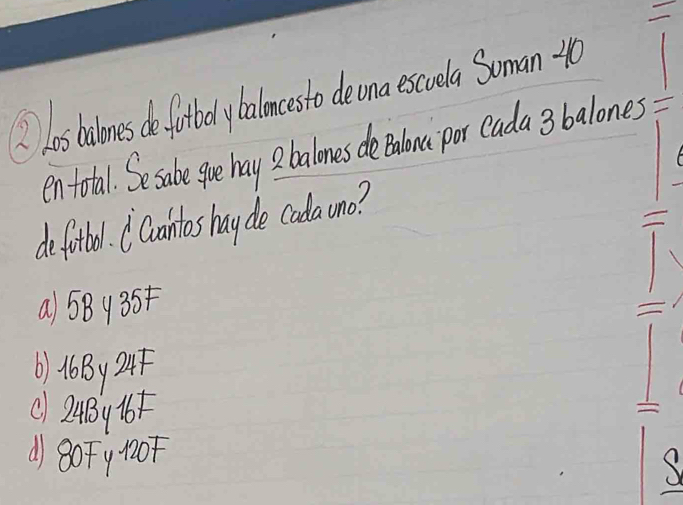 ② Los balones de futbol y baloncesto de una escuela Suman 40
en total. Se sabe que hay 2 balones de Balonce por cada 3 balones
de futbol. ¿Cuántos hay de cada uno?
a) 5B y 35F
b) 16B y 24F
c) 24B y 16F
d) 80F y 120F